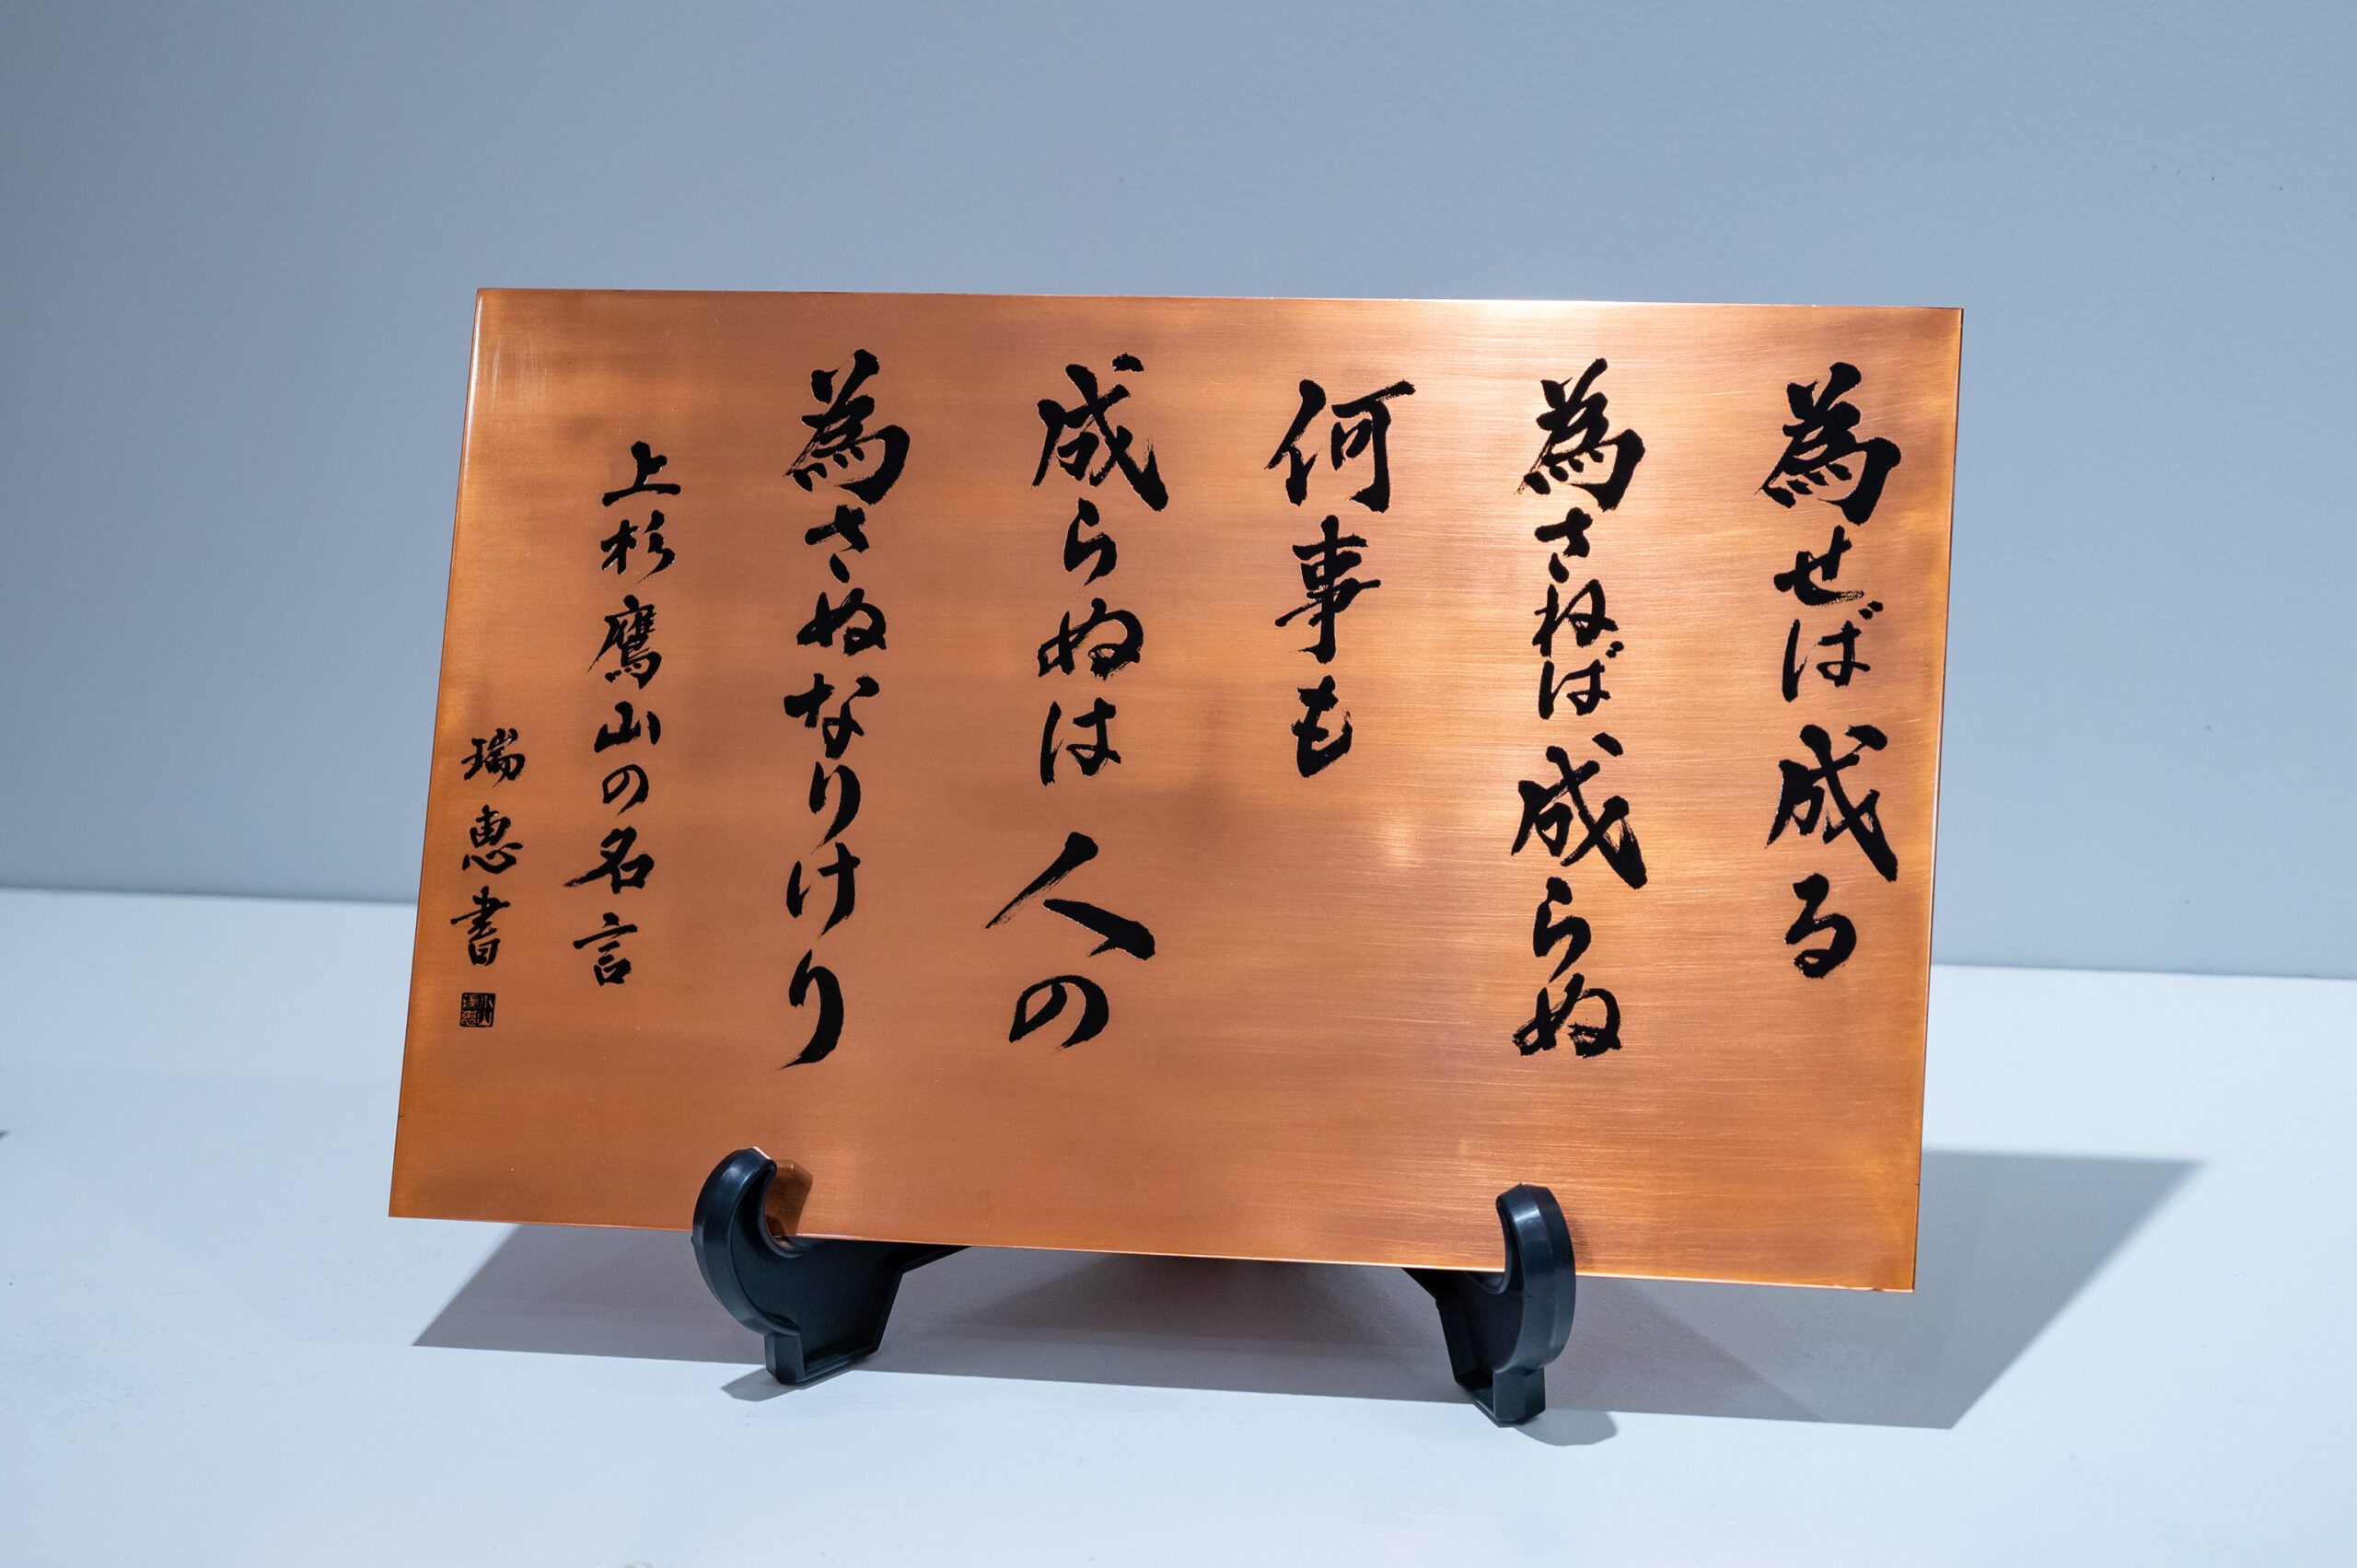 為せば成る
為さねば成らぬ
何事も
成らぬは人の
為さぬなりけり
上杉鷹山の名言
瑞恵書